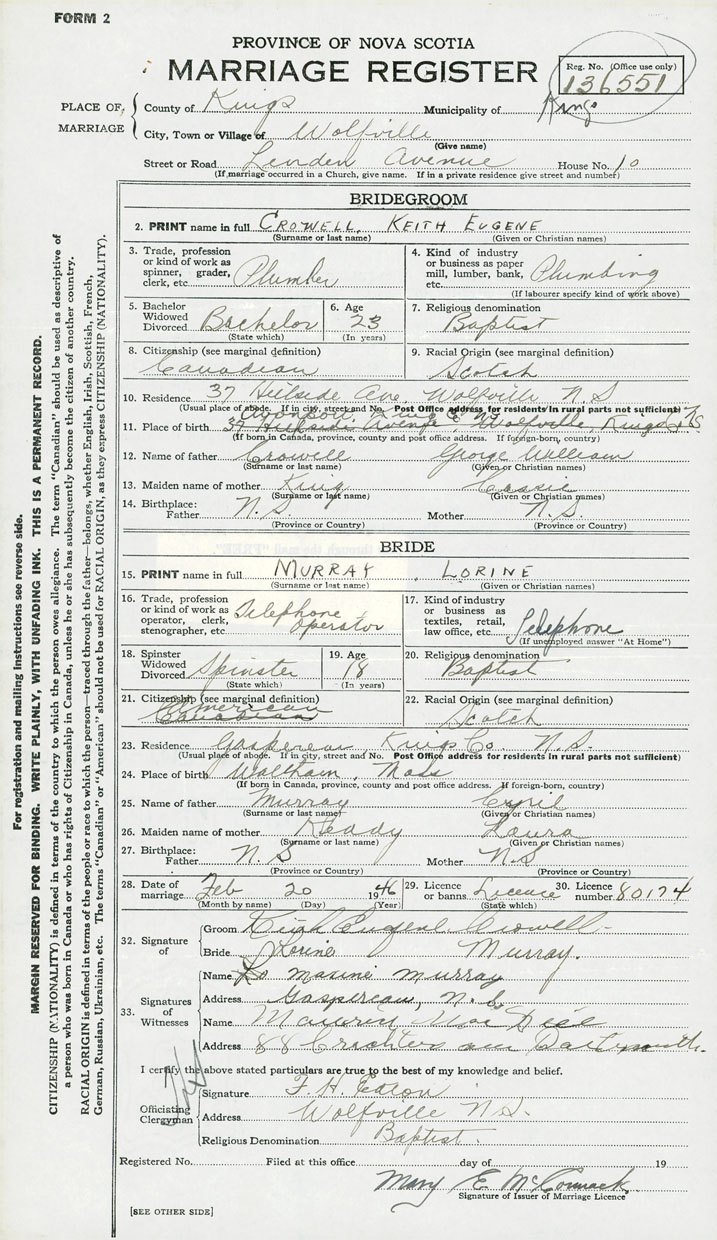 FORM 2
PROVINCE OF NOVA SCOTIA
MARRIAGE REGISTER
Reg. No. (Office use only)
136551
PLACE OF MARRIAGE
County of Kings Municipality of Kings
City, Town or Village of Wolfville
(Give name)
Street or Road Linden Avenue House No. 10
(If marriage occurred in a Church, give name. If in a private residence give street and number)
BRIDEGROOM
2. PRINT name in full CROWELL, KEITH EUGENE
(Surname or last name) (Given or Christian names)
3. Trade, profession or kind of work as spinner, grader, clerk, etc. Plumber
4. Kind of industry or business as paper mill, lumber, bank, etc. Plumbing
(If labourer specify kind of work above)
5. Bachelor Widowed Divorced Bachelor
(State which)
6. Age 23
(In years)
7. Religious denomination
Baptist
8. Citizenship (see marginal definition)
Canadian
9. Racial Origin (see marginal definition)
Scotch
10. Residence 37 Hillside Ave. Wolfville N S
(Usual place of abode. If in city, street and No. Post Office address for residents in rural parts not sufficient)
11. Place of birth 37 Hillside Avenue Wolfville, Kings N.S
(If born in Canada, province and county post office address. If foreign-born, country)
12. Name of father Crowell George William
(Surname or last name) (Given or Christian names)
13. Maiden name of mother King Cassie
(Surname or last name) (Given or Christian names)
14. Birthplace:
Father N.S. Mother N.S.
(Province or Country) (Province or Country)
BRIDE
15. PRINT name in full MURRAY, LORINE
(Surname or last name) (Given or Christian names)
16. Trade, profession or kind of work as operator, clerk, stenographer, etc. Telephone operator
17. Kind of industry or business as textiles, retail, law office, etc. Telephone
(If unemployed answer "At Home")
18. Spinster Widowed Divorced Spinster
(State which)
19. Age 18
(In years)
20. Religious denomination
Baptist
21. Citizenship (see marginal definition)
American
Canadian
22. Racial Origin (see marginal definition)
Scotch
23. Residence Gaspereau Kings Co. N.S.
(Usual place of abode. If in city, street and No. Post Office address for residents in rural parts not sufficient)
24. Place of birth Waltham, Mass
(If born in Canada, province, county and post office address. If foreign-born, country)
25. Name of father Murray Cyril
(Surname or last name) (Given or Christian names)
26. Maiden name of mother Keddy Laura
(Surname or last name) (Given or Christian names)
27. Birthplace:
Father N.S Mother N.S
(Province or Country) (Province or Country)
28. Date of marriage Feb 20 1946
(Month by name) (Day) (Year)
29. Licence or banns License
(State which)
30. Licence number 80174
32. Signature of
Groom Keith Eugene Crowell
Bride Lorine Murray.
33. Signatures of Witnesses
Name Maxine Murray
Address Gaspereau, N.S.
Name
Address 88 Dartmouth.
I certify the above stated particulars are true to the best of my knowledge and belief.
Officiating Clergyman
Signature F. H. Eaton
Address Wolfville N.S.
Religious Denomination Baptist.
Registered No. Filed at this office day of 19
Mary E McCormack
Signature of Issuer of Marriage Licence
[SEE OTHER SIDE]
For registration and mailing instructions see reverse side.
MARGIN RESERVED FOR BINDING. WRITE PLAINLY, WITH UNFADING INK. THIS IS A PERMANENT RECORD.
CITIZENSHIP (NATIONALITY) is defined in terms of the country to which the person owes allegiance. The term "Canadian" should be used as descriptive of
a person who was born in Canada or who has rights of Citizenship in Canada, unless he or she has subsequently become the citizen of another country.
RACIAL ORIGIN is defined in terms of the people or race to which the person—traced through the father—belongs, whether English, Irish, Scottish, French,
German, Russian, Ukrainian, etc. The terms "Canadian" or "American" should not be used for RACIAL ORIGIN, as they express CITIZENSHIP (NATIONALITY).